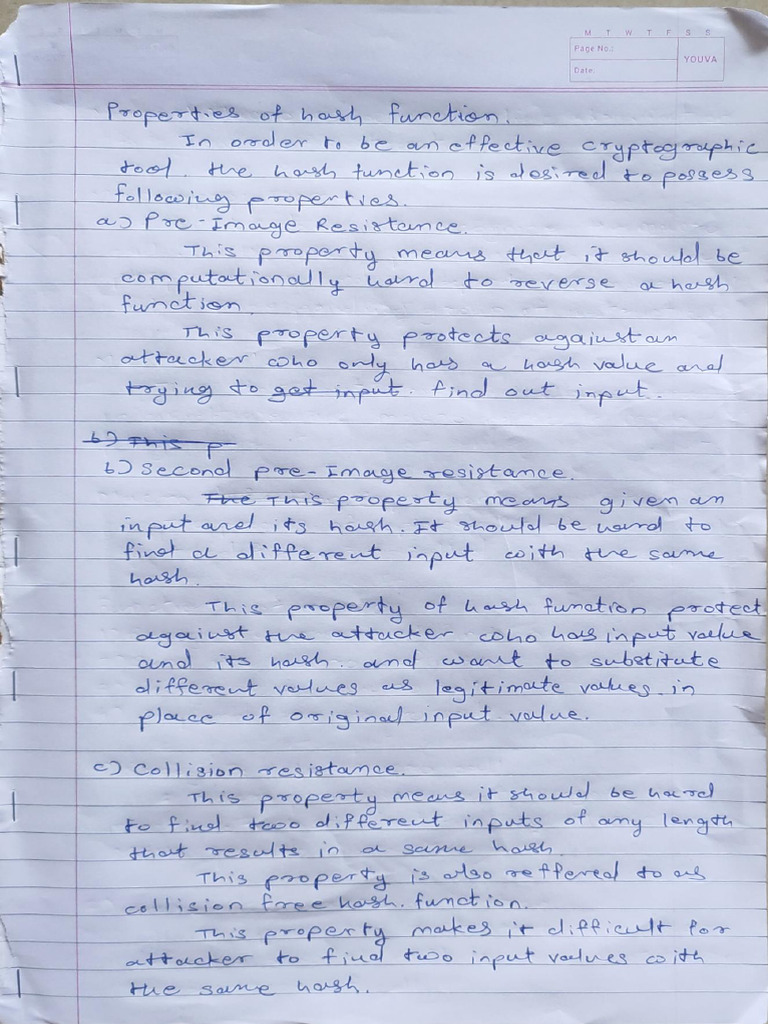 M T W T F S S
Page No.:
Date:
YOUVA
Properties of hash function.
In order to be an effective cryptographic
tool. the hash function is desired to possess
following properties.
a) Pre-Image Resistance.
This property means that it should be
computationally hard to reverse a hash
function.
This property protects against an
attacker who only has a hash value and
trying to get input. find out input.
b) This p
b) Second pre-Image resistance.
The This property means given an
input and its hash. It should be hard to
find a different input with the same
hash.
This property of hash function protect
against the attacker who has input value
and its hash. and want to substitute
different values as legitimate values in
place of original input value.
c) Collision resistance.
This property means it should be hard
to find two different inputs of any length
that results in a same hash.
This property is also reffered to as
collision free hash function.
This property makes it difficult for
attacker to find two input values with
the same hash.